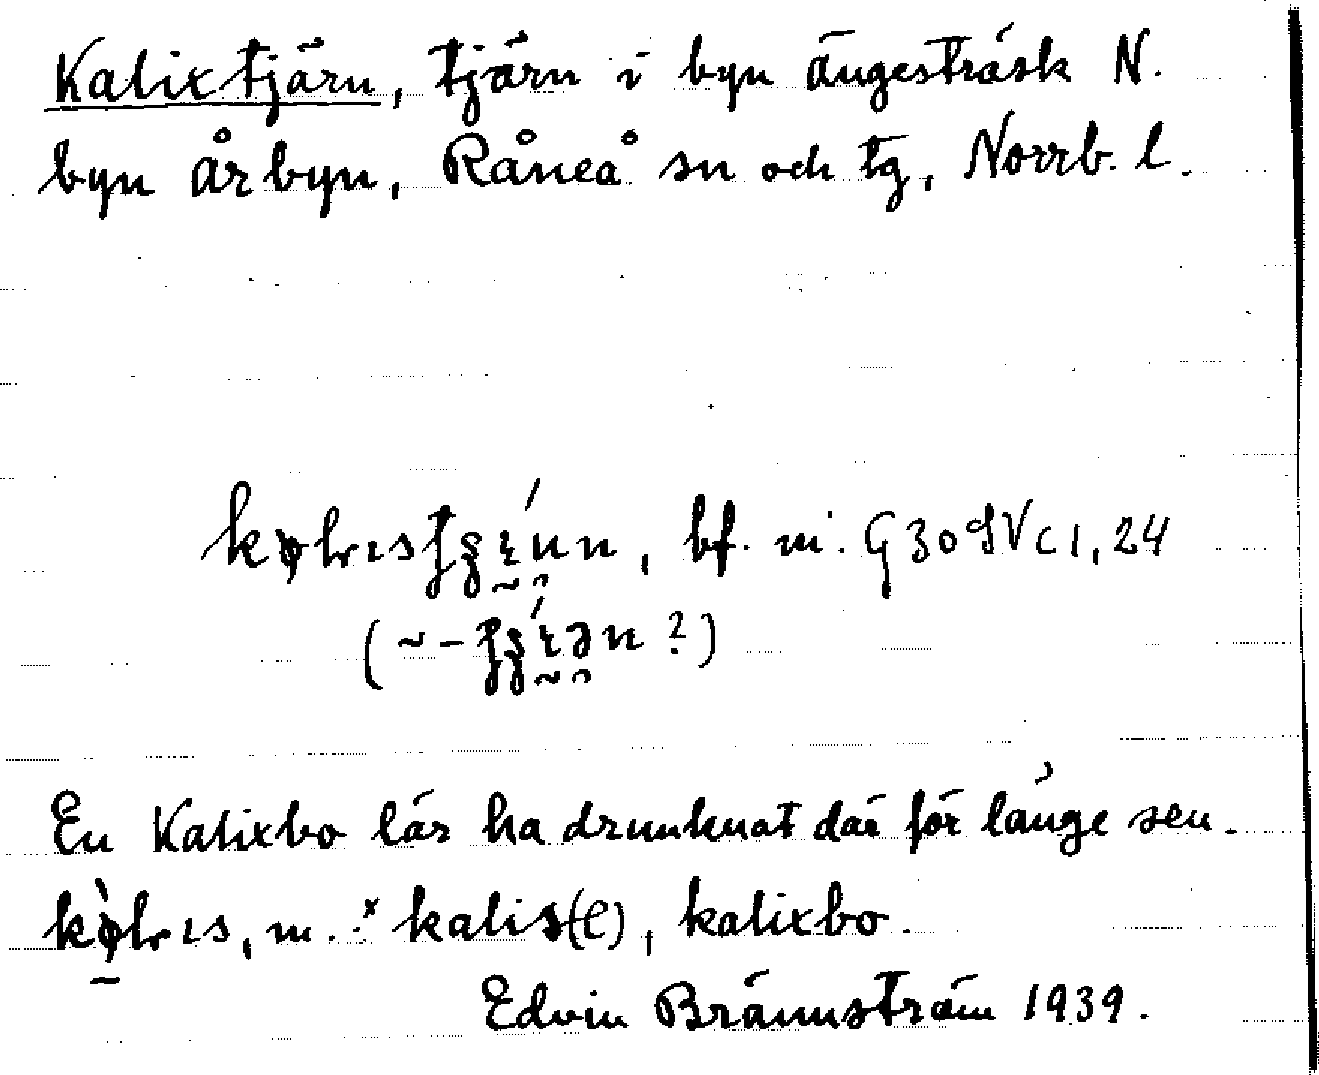 Kalixtjärn, tjärn i byn Ängesträsk N.
byn Årbyn, Råneå sn och tg, Norrb. l.
, bf. m. G30 SV c 1, 24
En Kalixbo lär ha drunknat där för länge sen.
, m. : × kalis(e), kalixbo.
Edvin Brännström 1939.